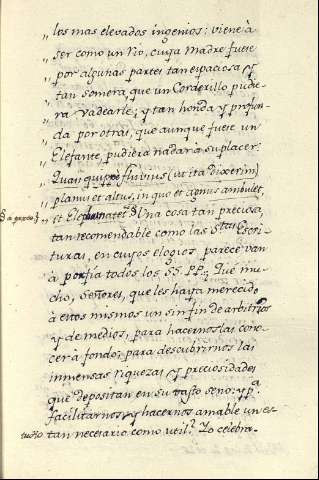 ,, los mas elevados ingenios: viene à
,, ser como un rio, cuya Madre fuese
,, por algunas partes tan espaciosa, y
,, tan somera, que un Corderillo pudie-
,, ra vadearle; y tan honda y profun-
,, da por otras, que aunque fuese un
,, Elefante, pudiera nadar à su placer.
,, Quasi quippe fluvius (ut ita dixerim)
,, planus et altus, in quo et agnus ambulet,
,, et Elephas natet. Una cosa tan preciosa,
tan recomendable como las Stas Escri-
turas, en cuyos elogios, parece van
à porfia todos los SS. PP., Què mu-
cho, Señores, que les haya merecido
à estos mismos un sin fin de arbitrios
y de medios, para hacernoslas cono-
cer à fondo; para descubrirnos las
inmensas riquezas, y preciosidades
que depositan en su vasto seno; y pa.
facilitarnos, y hacernos amable un es-
tudio tan necesario como util? Yo celebra-